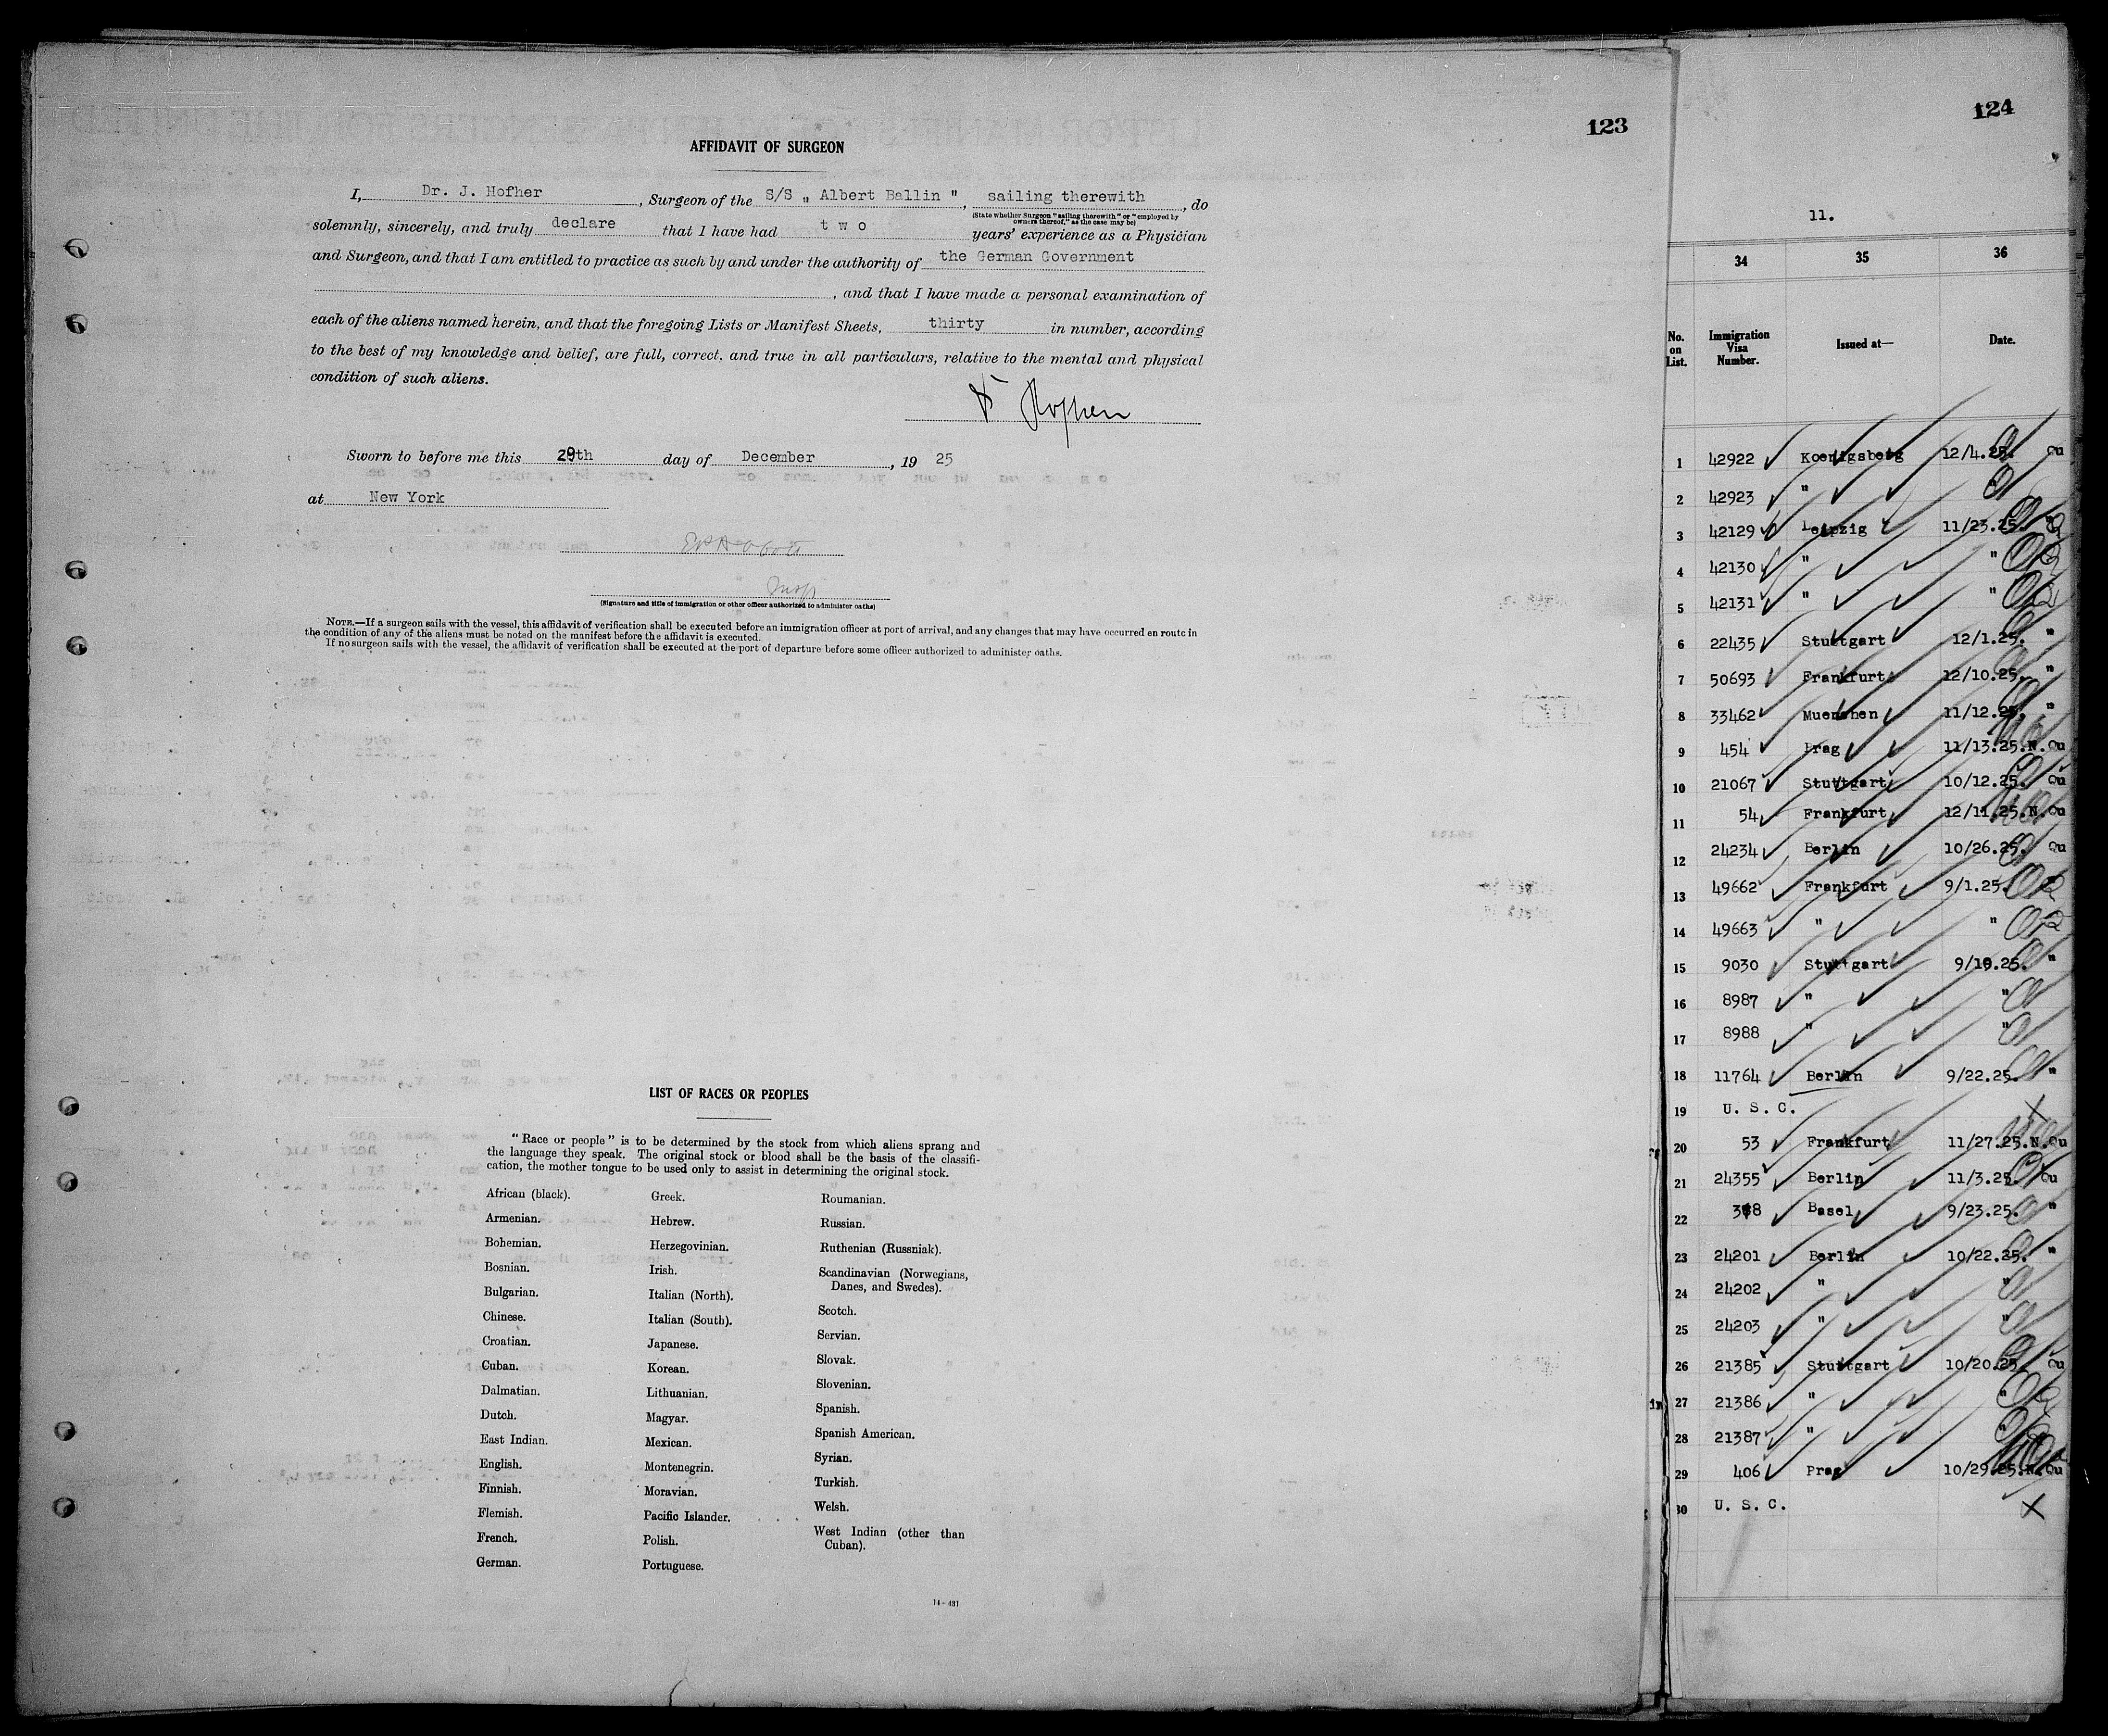 123
AFFIDAVIT OF SURGEON
I, Dr. J. Hofher, Surgeon of the S/S „ Albert Ballin ", sailing therewith, do
(State whether Surgeon "sailing therewith" or "employed by owners thereof," as the case may be)
solemnly, sincerely, and truly declare that I have had t w o years' experience as a Physician
and Surgeon, and that I am entitled to practice as such by and under the authority of the German Government
, and that I have made a personal examination of
each of the aliens named herein, and that the foregoing Lists or Manifest Sheets, thirty in number, according
to the best of my knowledge and belief, are full, correct. and true in all particulars, relative to the mental and physical
condition of such aliens.
Sworn to before me this 29th day of December, 19 25
at New York
Insp
(Signature and title of immigration or other officer authorized to administer oaths)
NOTE.—If a surgeon sails with the vessel, this affidavit of verification shall be executed before an immigration officer at port of arrival, and any changes that may have occurred en route in
the condition of any of the aliens must be noted on the manifest before the affidavit is executed.
If no surgeon sails with the vessel, the affidavit of verification shall be executed at the port of departure before some officer authorized to administer oaths.
LIST OF RACES OR PEOPLES
"Race or people" is to be determined by the stock from which aliens sprang and
the language they speak. The original stock or blood shall be the basis of the classifi-
cation, the mother tongue to be used only to assist in determining the original stock.
African (black).
Armenian.
Bohemian.
Bosnian.
Bulgarian.
Chinese.
Croatian.
Cuban.
Dalmatian.
Dutch.
East Indian.
English.
Finnish.
Flemish.
French.
German.
Greek.
Hebrew.
Herzegovinian.
Irish.
Italian (North).
Italian (South).
Japanese.
Korean.
Lithuanian.
Magyar.
Mexican.
Montenegrin.
Moravian.
Pacific Islander.
Polish.
Portuguese.
Roumanian.
Russian.
Ruthenian (Russniak).
Scandinavian (Norwegians,
Danes, and Swedes).
Scotch.
Servian.
Slovak.
Slovenian.
Spanish.
Spanish American.
Syrian.
Turkish.
Welsh.
West Indian (other than
Cuban).
14-431
124
11.
34 35 36
No. on List. Immigration Visa Number. Issued at— Date.
1 42922 Koenigsberg 12/4.25. Qu
2 42923 " "
3 42129 Leipzig 11/23.25. "
4 42130 " "
5 42131 " "
6 22435 Stuttgart 12/1.25. "
7 50693 Frankfurt 12/10.25. "
8 33462 Muenchen 11/12.25. "
9 454 Prag 11/13.25.N.Qu
10 21067 Stuttgart 10/12.25. Qu
11 54 Frankfurt 12/11.25.N.Qu
12 24234 Berlin 10/26.25. Qu
13 49662 Frankfurt 9/1.25.
14 49663 " "
15 9030 Stuttgart 9/19.25. "
16 8987 " "
17 8988 " "
18 11764 Berlin 9/22.25. "
19 U. S. C. X
20 53 Frankfurt 11/27.25.N.Qu
21 24355 Berlin 11/3.25. Qu
22 Basel 9/23.25. "
23 24201 Berlin 10/22.25. "
24 24202 " "
25 24203 " "
26 21385 Stuttgart 10/20.25. Qu
27 21386 " "
28 21387 " "
29 406 Prag 10/29.25.N.Qu
30 U. S. C. X